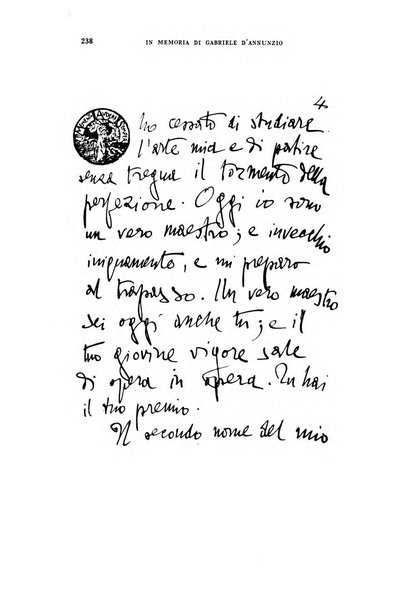 238
IN MEMORIA DI GABRIELE D'ANNUNZIO
4
ho cessato di studiare
l'arte mia e di patire
senza tregua il tormento della
perfezione. Oggi io sono
un vero maestro; e invecchio
iniquamente, e mi preparo
al trapasso. Un vero maestro
sei oggi anche tu; e il
tuo giovine vigore sale
di opera in opera. Tu hai
il tuo premio.
Il secondo nome del mio